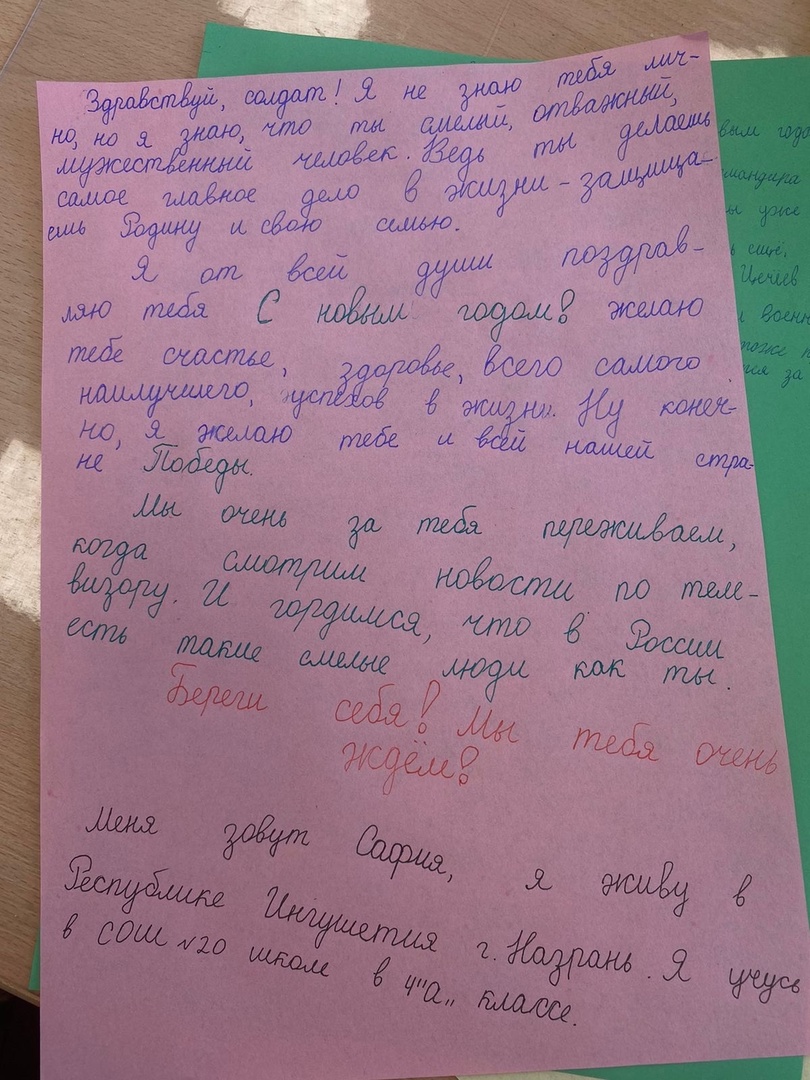 Здравствуй, солдат! Я не знаю тебя лич-
но, но я знаю, что ты смелый, отважный,
мужественный человек. Ведь ты делаешь
самое главное дело в жизни - защища-
ешь Родину и свою семью.
Я от всей души поздрав-
ляю тебя С новым годом! желаю
тебе счастье, здоровье, всего самого
наилучшего, успехов в жизни. Ну конеч-
но, я желаю тебе и всей нашей стра-
не Победы.
Мы очень за тебя переживаем,
когда смотрим новости по теле-
визору. И гордимся, что в России
есть такие смелые люди как ты.
Береги себя! Мы тебя очень
ждём!
Меня зовут Сафия, я живу в
Республике Ингушетия г. Назрань. Я учусь
в СОШ №20 школе в 4"а" классе.
вым годо
мандира
ы уже
ь ещё.
Цечоев
военн
тоже
за